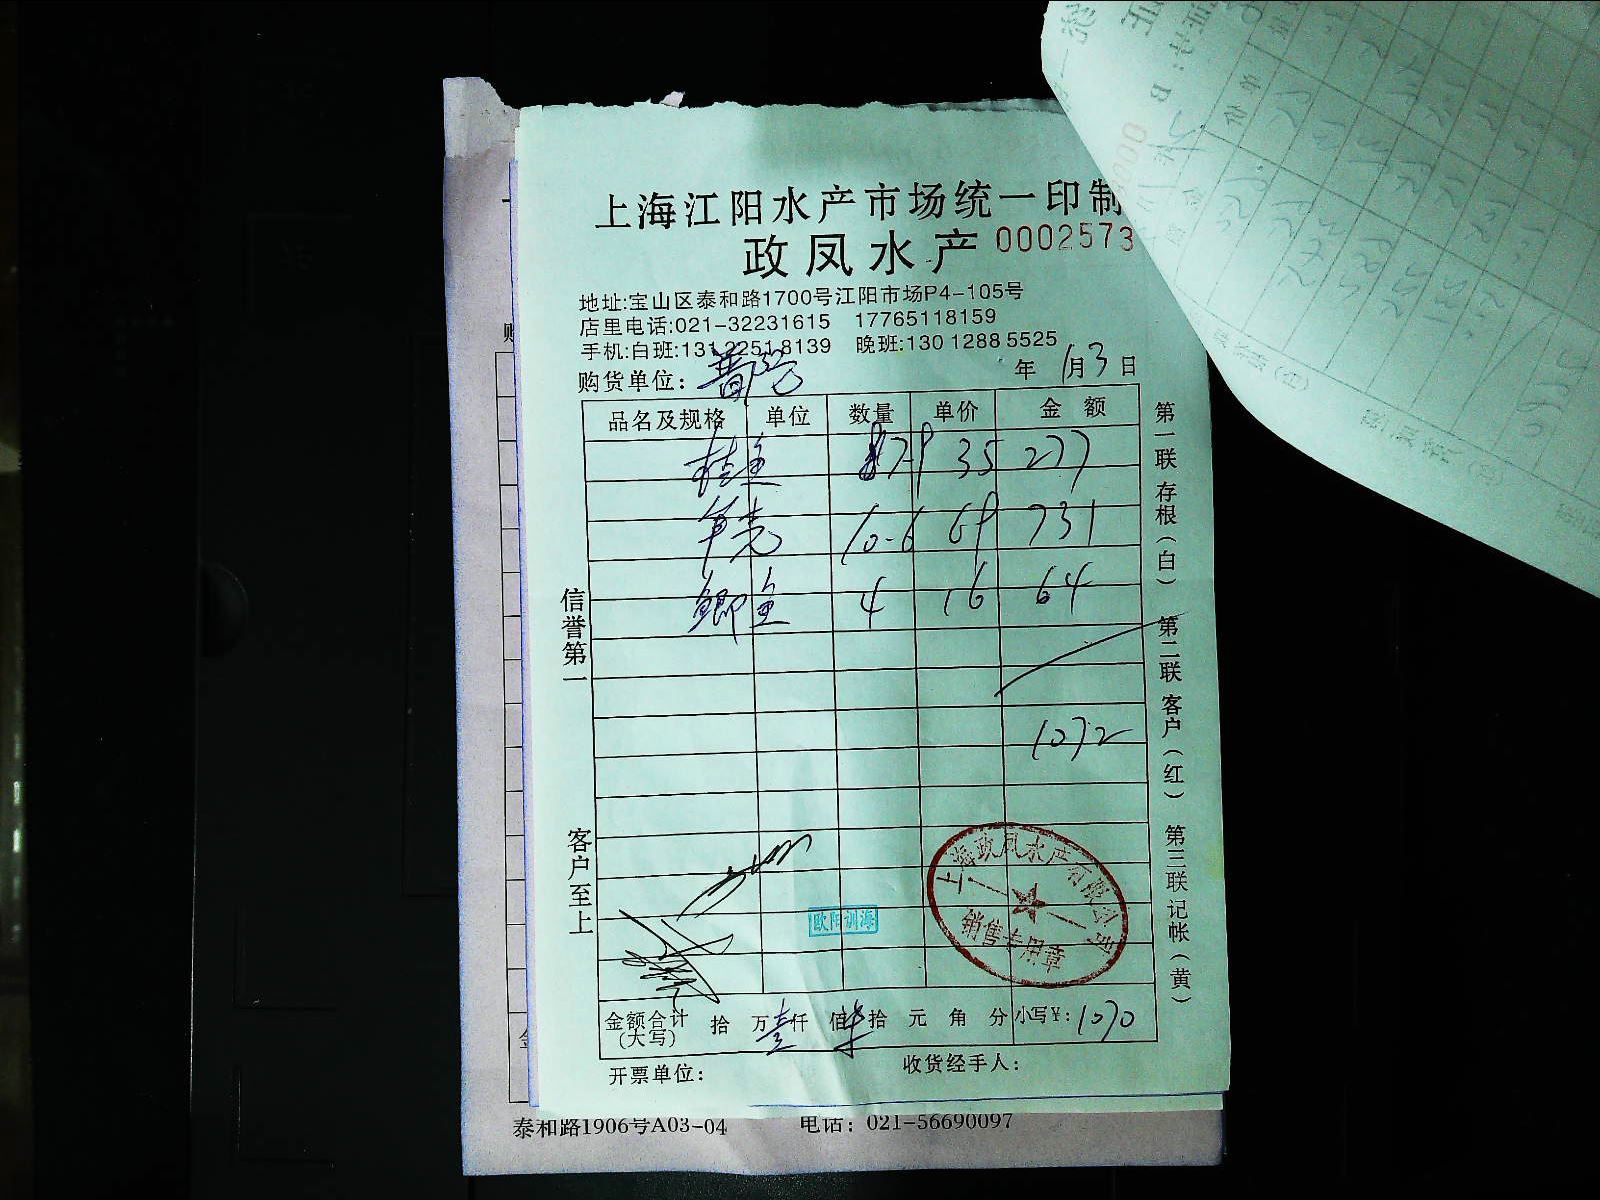 上海江阳水产市场统一印制
政凤水产 0002573
地址:宝山区泰和路1700号江阳市场P4-105号
店里电话:021-32231615 17765118159
手机:白班:131 2251 8139 晚班:130 1288 5525
购货单位: 年 1月3日
品名及规格 单位 数量 单价 金额
桂鱼 7-9 35 277
笋壳 10-6 69 731
鲫鱼 4 16 64
1072
信誉第一
客户至上
第一联 存根(白) 第二联 客户(红) 第三联 记帐(黄)
欧阳训海
上海政凤水产有限公司
销售专用章
金额合计(大写) 拾 万 壹仟 佰 柒拾 元 角 分 小写¥: 1070
开票单位: 收货经手人:
泰和路1906号A03-04 电话: 021-56690097